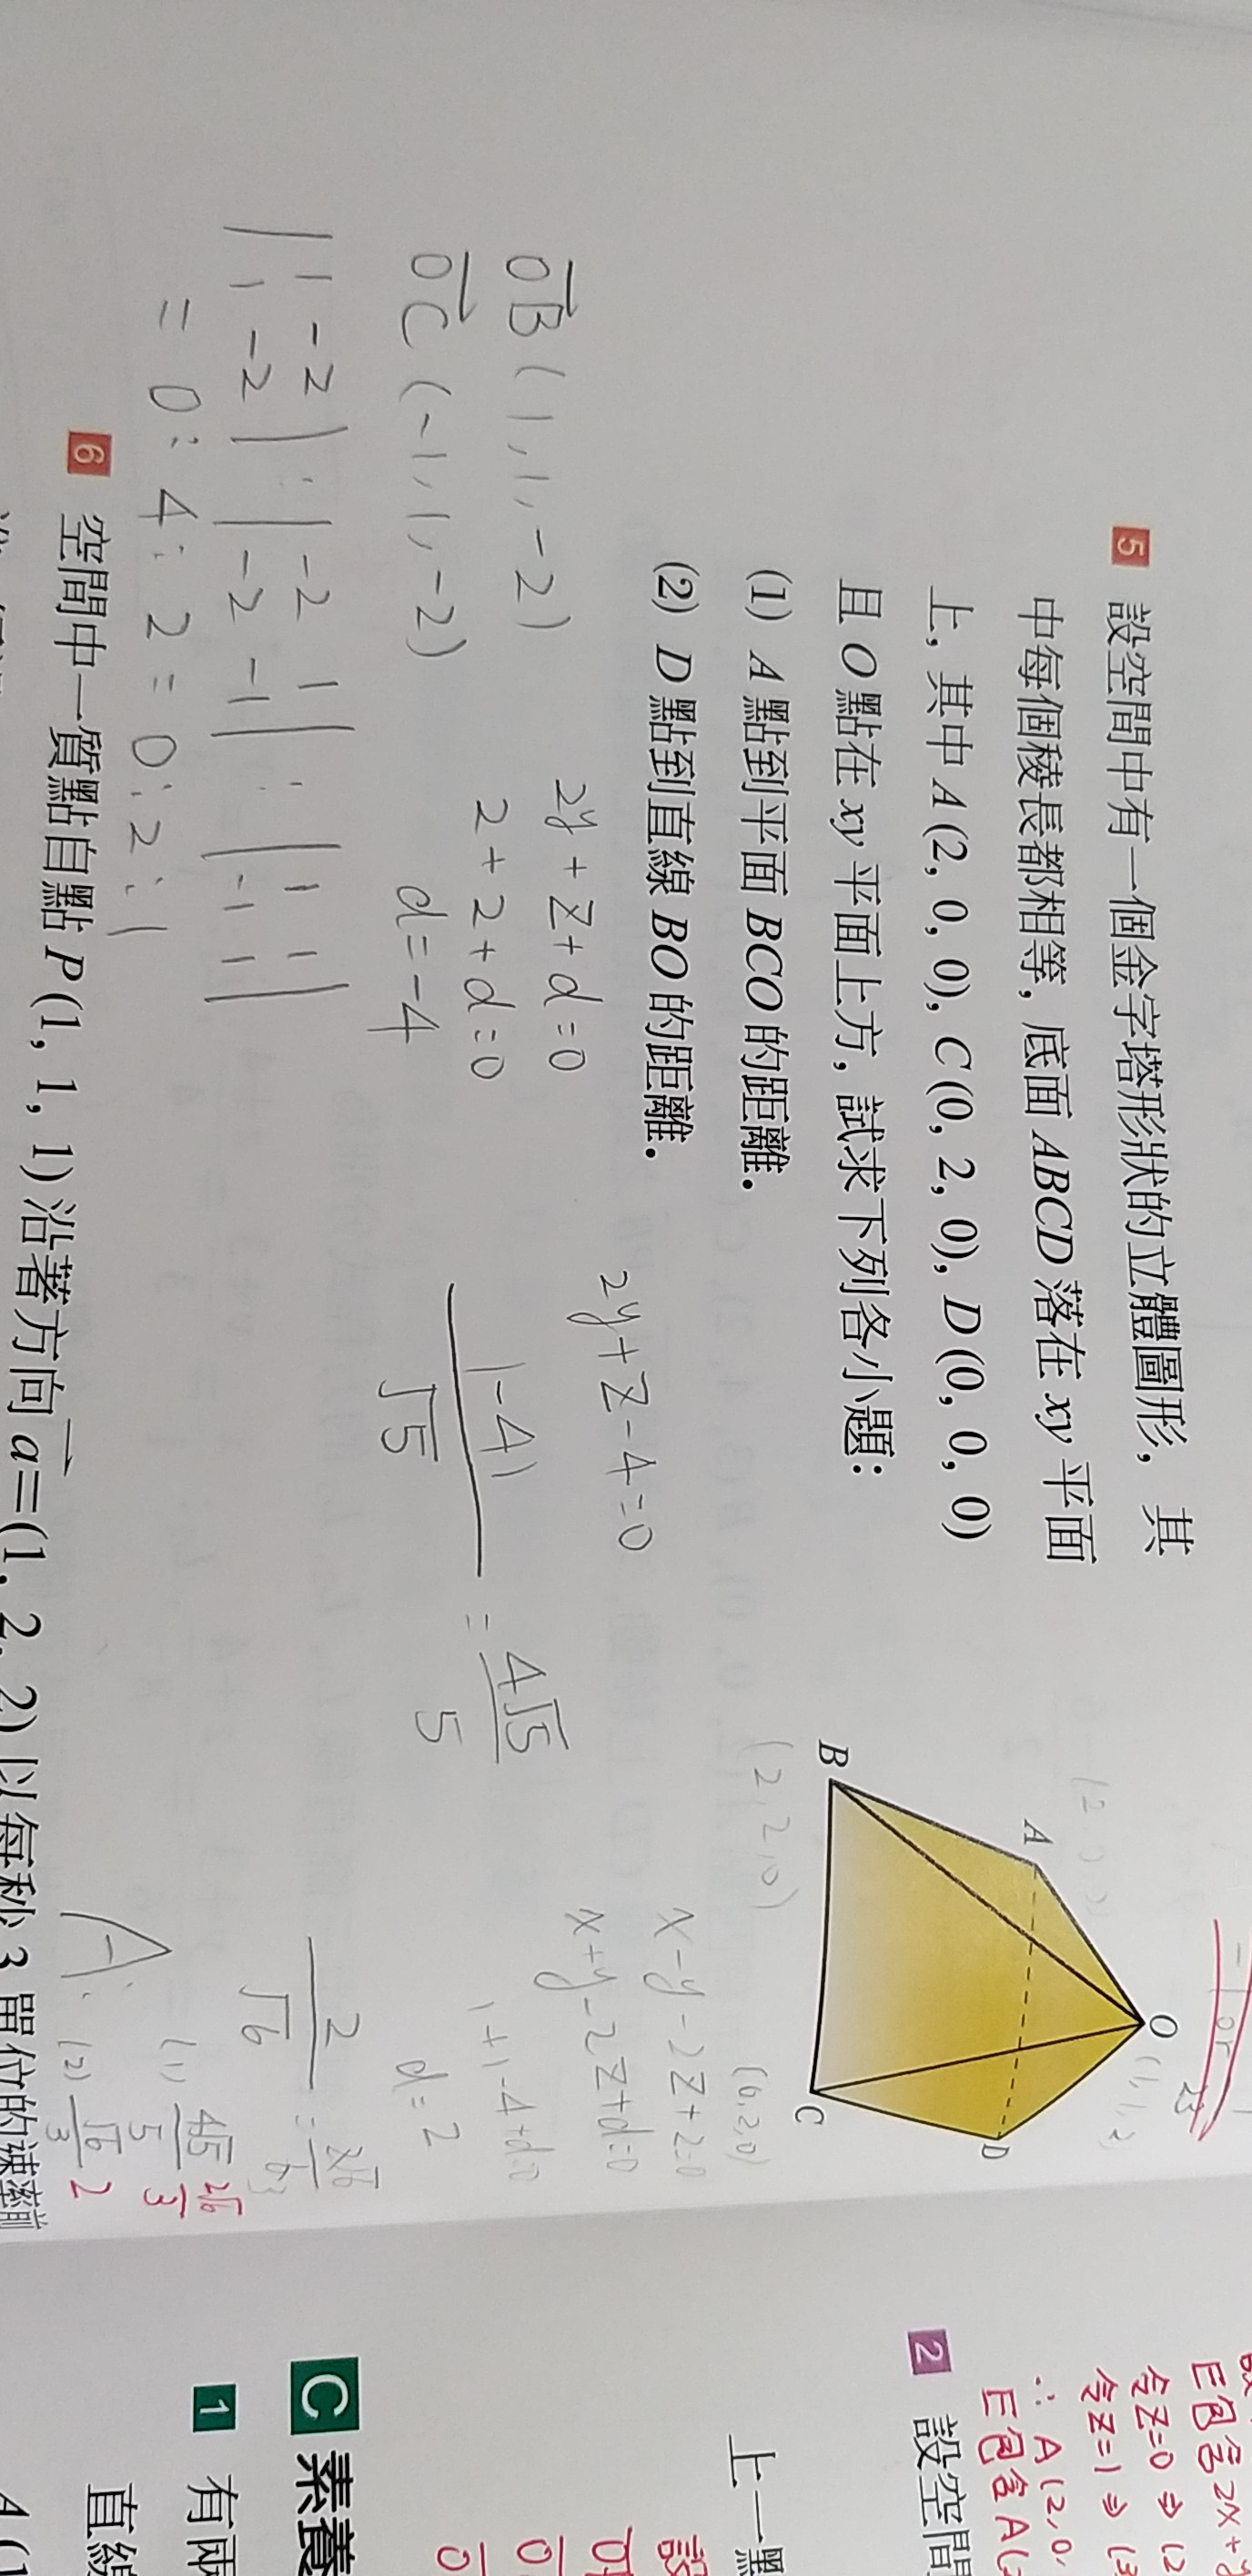 5 設空間中有一個金字塔形狀的立體圖形，其
中每個稜長都相等，底面 ABCD 落在 xy 平面
上，其中 A (2, 0, 0), C (0, 2, 0), D (0, 0, 0)
且 O 點在 xy 平面上方，試求下列各小題：
(1) A 點到平面 BCO 的距離．
(2) D 點到直線 BO 的距離．
O
(1,1,2)
A
D
B
C
(2,2,0)
(0,2,0)
OB (1,1,-2)
OC (-1,1,-2)
|1 -2|:|-2 1|:|1 1|
|1 -2| |-2 -1| |-1 1|
= 0:4:2=0:2:1
2y+z+d=0
2+2+d=0
d=-4
2y+z-4=0
|-4|
√5
= 4√5
5
x-y-2z+2=0
x+y-2z+d=0
1+1-4+d=0
d=2
2
√6
A:
(1) 4√5
5
2√6
3
(2) √6
3
2
6 空間中一質點自點 P (1, 1, 1) 沿著方向 a=(1, 2, 2) 以每秒 3 單位的速率
2 設空間
上一點
E包含 2x+
令z=0 ⇒ (2
令z=1 ⇒ (3
∴ A(2,0,
E包含 A(2
C 素養
1 有兩
直線